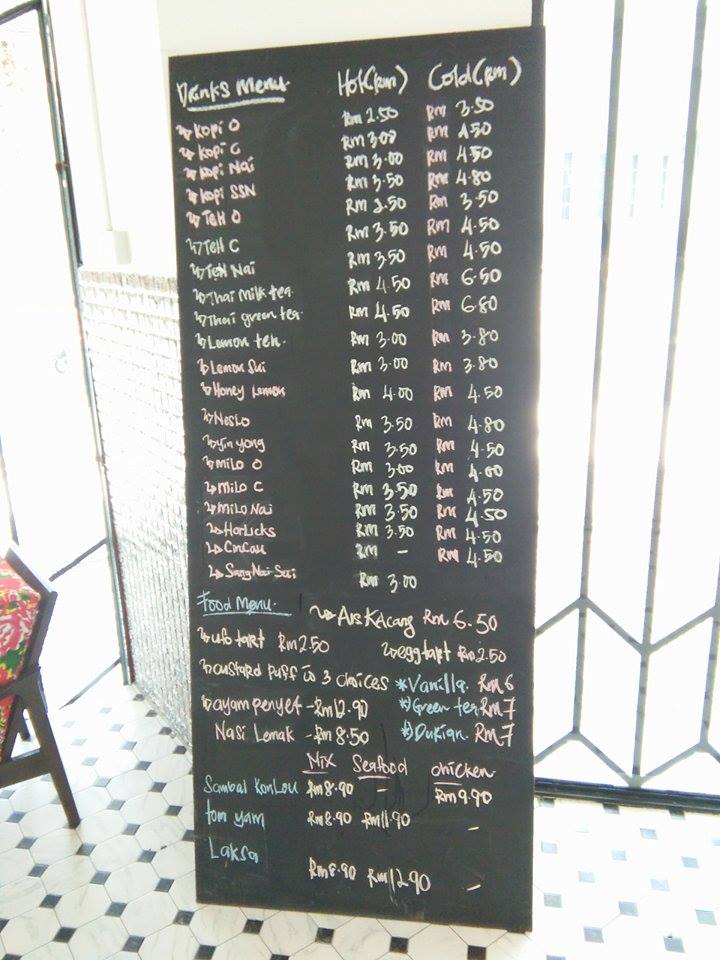 Drinks Menu Hot(Rm) Cold(Rm)
Kopi O Rm 2.50 Rm 3.50
Kopi C Rm 3.00 Rm 4.50
Kopi Nai Rm 3.00 Rm 4.50
Kopi SSN Rm 3.50 Rm 4.80
Teh O Rm 2.50 Rm 3.50
Teh C Rm 3.50 Rm 4.50
Teh Nai Rm 3.50 Rm 4.50
Thai Milk tea Rm 4.50 Rm 6.50
Thai green tea Rm 4.50 Rm 6.80
Lemon teh Rm 3.00 Rm 3.80
Lemon Sui Rm 3.00 Rm 3.80
Honey Lemon Rm 4.00 Rm 4.50
Neslo Rm 3.50 Rm 4.80
Yin yong Rm 3.50 Rm 4.50
Milo O Rm 3.00 Rm 4.00
Milo C Rm 3.50 Rm 4.50
Milo Nai Rm 3.50 Rm 4.50
Horlicks Rm 3.50 Rm 4.50
Cincau Rm - Rm 4.50
Sang Nai Sui Rm 3.00
Food Menu Ais Kacang Rm 6.50
ufo tart Rm 2.50 egg tart Rm 2.50
custard puff in 3 choices *Vanilla Rm 6
ayam penyet - Rm 12.90 *) Green tea Rm 7
Nasi Lemak - Rm 8.50 *) Durian Rm 7
Mix Seafood chicken
Sambal KonLou Rm 8.90 - Rm 9.90
tom yam Rm 8.90 Rm 11.90 -
Laksa Rm 8.90 Rm 12.90 -